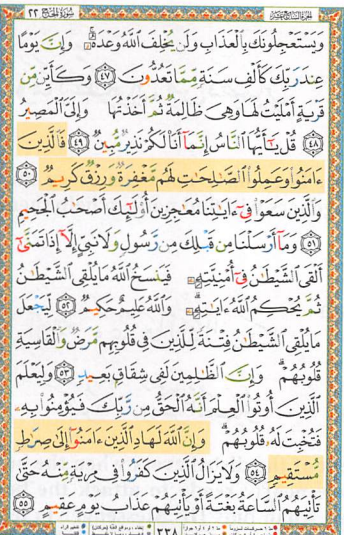 الجزء السابع عشر سورة الحج ٢٢
وَيَسْتَعْجِلُونَكَ بِٱلْعَذَابِ وَلَن يُخْلِفَ ٱللَّهُ وَعْدَهُۥ ۚ وَإِنَّ يَوْمًا
عِندَ رَبِّكَ كَأَلْفِ سَنَةٍ مِّمَّا تَعُدُّونَ ٤٧ وَكَأَيِّن مِّن
قَرْيَةٍ أَمْلَيْتُ لَهَا وَهِىَ ظَالِمَةٌ ثُمَّ أَخَذْتُهَا وَإِلَىَّ ٱلْمَصِيرُ
٤٨ قُلْ يَـٰٓأَيُّهَا ٱلنَّاسُ إِنَّمَآ أَنَا۠ لَكُمْ نَذِيرٌ مُّبِينٌ ٤٩ فَٱلَّذِينَ
ءَامَنُوا۟ وَعَمِلُوا۟ ٱلصَّـٰلِحَـٰتِ لَهُم مَّغْفِرَةٌ وَرِزْقٌ كَرِيمٌ ٥٠
وَٱلَّذِينَ سَعَوْا۟ فِىٓ ءَايَـٰتِنَا مُعَـٰجِزِينَ أُو۟لَـٰٓئِكَ أَصْحَـٰبُ ٱلْجَحِيمِ
٥١ وَمَآ أَرْسَلْنَا مِن قَبْلِكَ مِن رَّسُولٍ وَلَا نَبِىٍّ إِلَّآ إِذَا تَمَنَّىٰٓ
أَلْقَى ٱلشَّيْطَـٰنُ فِىٓ أُمْنِيَّتِهِۦ فَيَنسَخُ ٱللَّهُ مَا يُلْقِى ٱلشَّيْطَـٰنُ
ثُمَّ يُحْكِمُ ٱللَّهُ ءَايَـٰتِهِۦ ۗ وَٱللَّهُ عَلِيمٌ حَكِيمٌ ٥٢ لِّيَجْعَلَ
مَا يُلْقِى ٱلشَّيْطَـٰنُ فِتْنَةً لِّلَّذِينَ فِى قُلُوبِهِم مَّرَضٌ وَٱلْقَاسِيَةِ
قُلُوبُهُمْ ۗ وَإِنَّ ٱلظَّـٰلِمِينَ لَفِى شِقَاقٍۭ بَعِيدٍ ٥٣ وَلِيَعْلَمَ
ٱلَّذِينَ أُوتُوا۟ ٱلْعِلْمَ أَنَّهُ ٱلْحَقُّ مِن رَّبِّكَ فَيُؤْمِنُوا۟ بِهِۦ
فَتُخْبِتَ لَهُۥ قُلُوبُهُمْ ۗ وَإِنَّ ٱللَّهَ لَهَادِ ٱلَّذِينَ ءَامَنُوٓا۟ إِلَىٰ صِرَٰطٍ
مُّسْتَقِيمٍ ٥٤ وَلَا يَزَالُ ٱلَّذِينَ كَفَرُوا۟ فِى مِرْيَةٍ مِّنْهُ حَتَّىٰ
تَأْتِيَهُمُ ٱلسَّاعَةُ بَغْتَةً أَوْ يَأْتِيَهُمْ عَذَابُ يَوْمٍ عَقِيمٍ ٥٥
٣٣٨